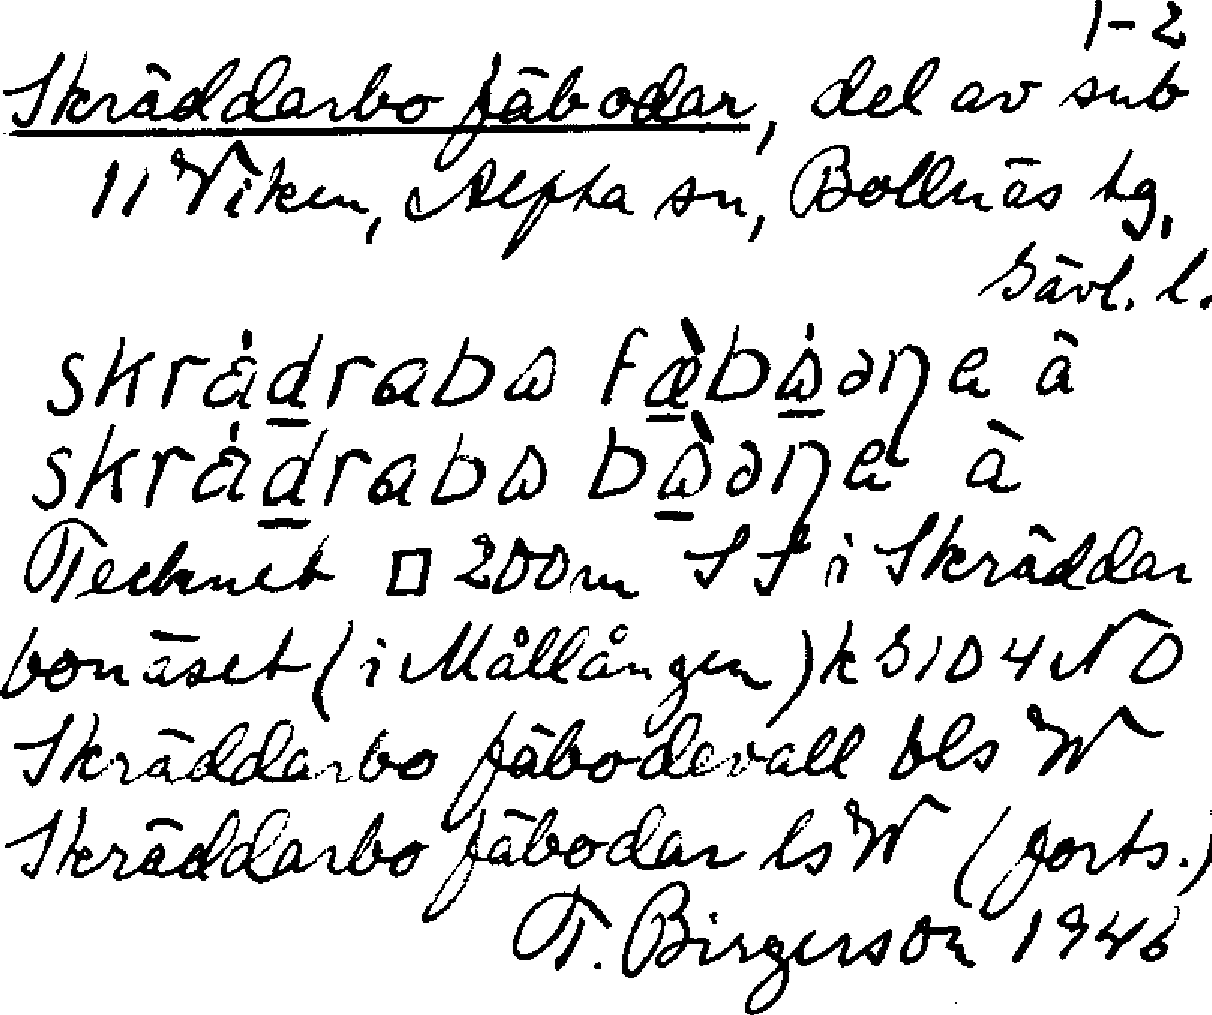 1-2
Skräddarbo fäbodar, del av sub
11 Viken, Alfta sn, Bollnäs tg,
Gävl. l.
skrå̀draba fæ̀bɷ̀əŋa â
skrå̀draba bɷ̀əŋa à
Tecknet □ 200m S S i Skräddar
bonäset (i Mållången) k G104 NO
Skräddarbo fäbodevall bls W
Skräddarbo fäbodar ls W (forts.)
T. Birgerson 1946